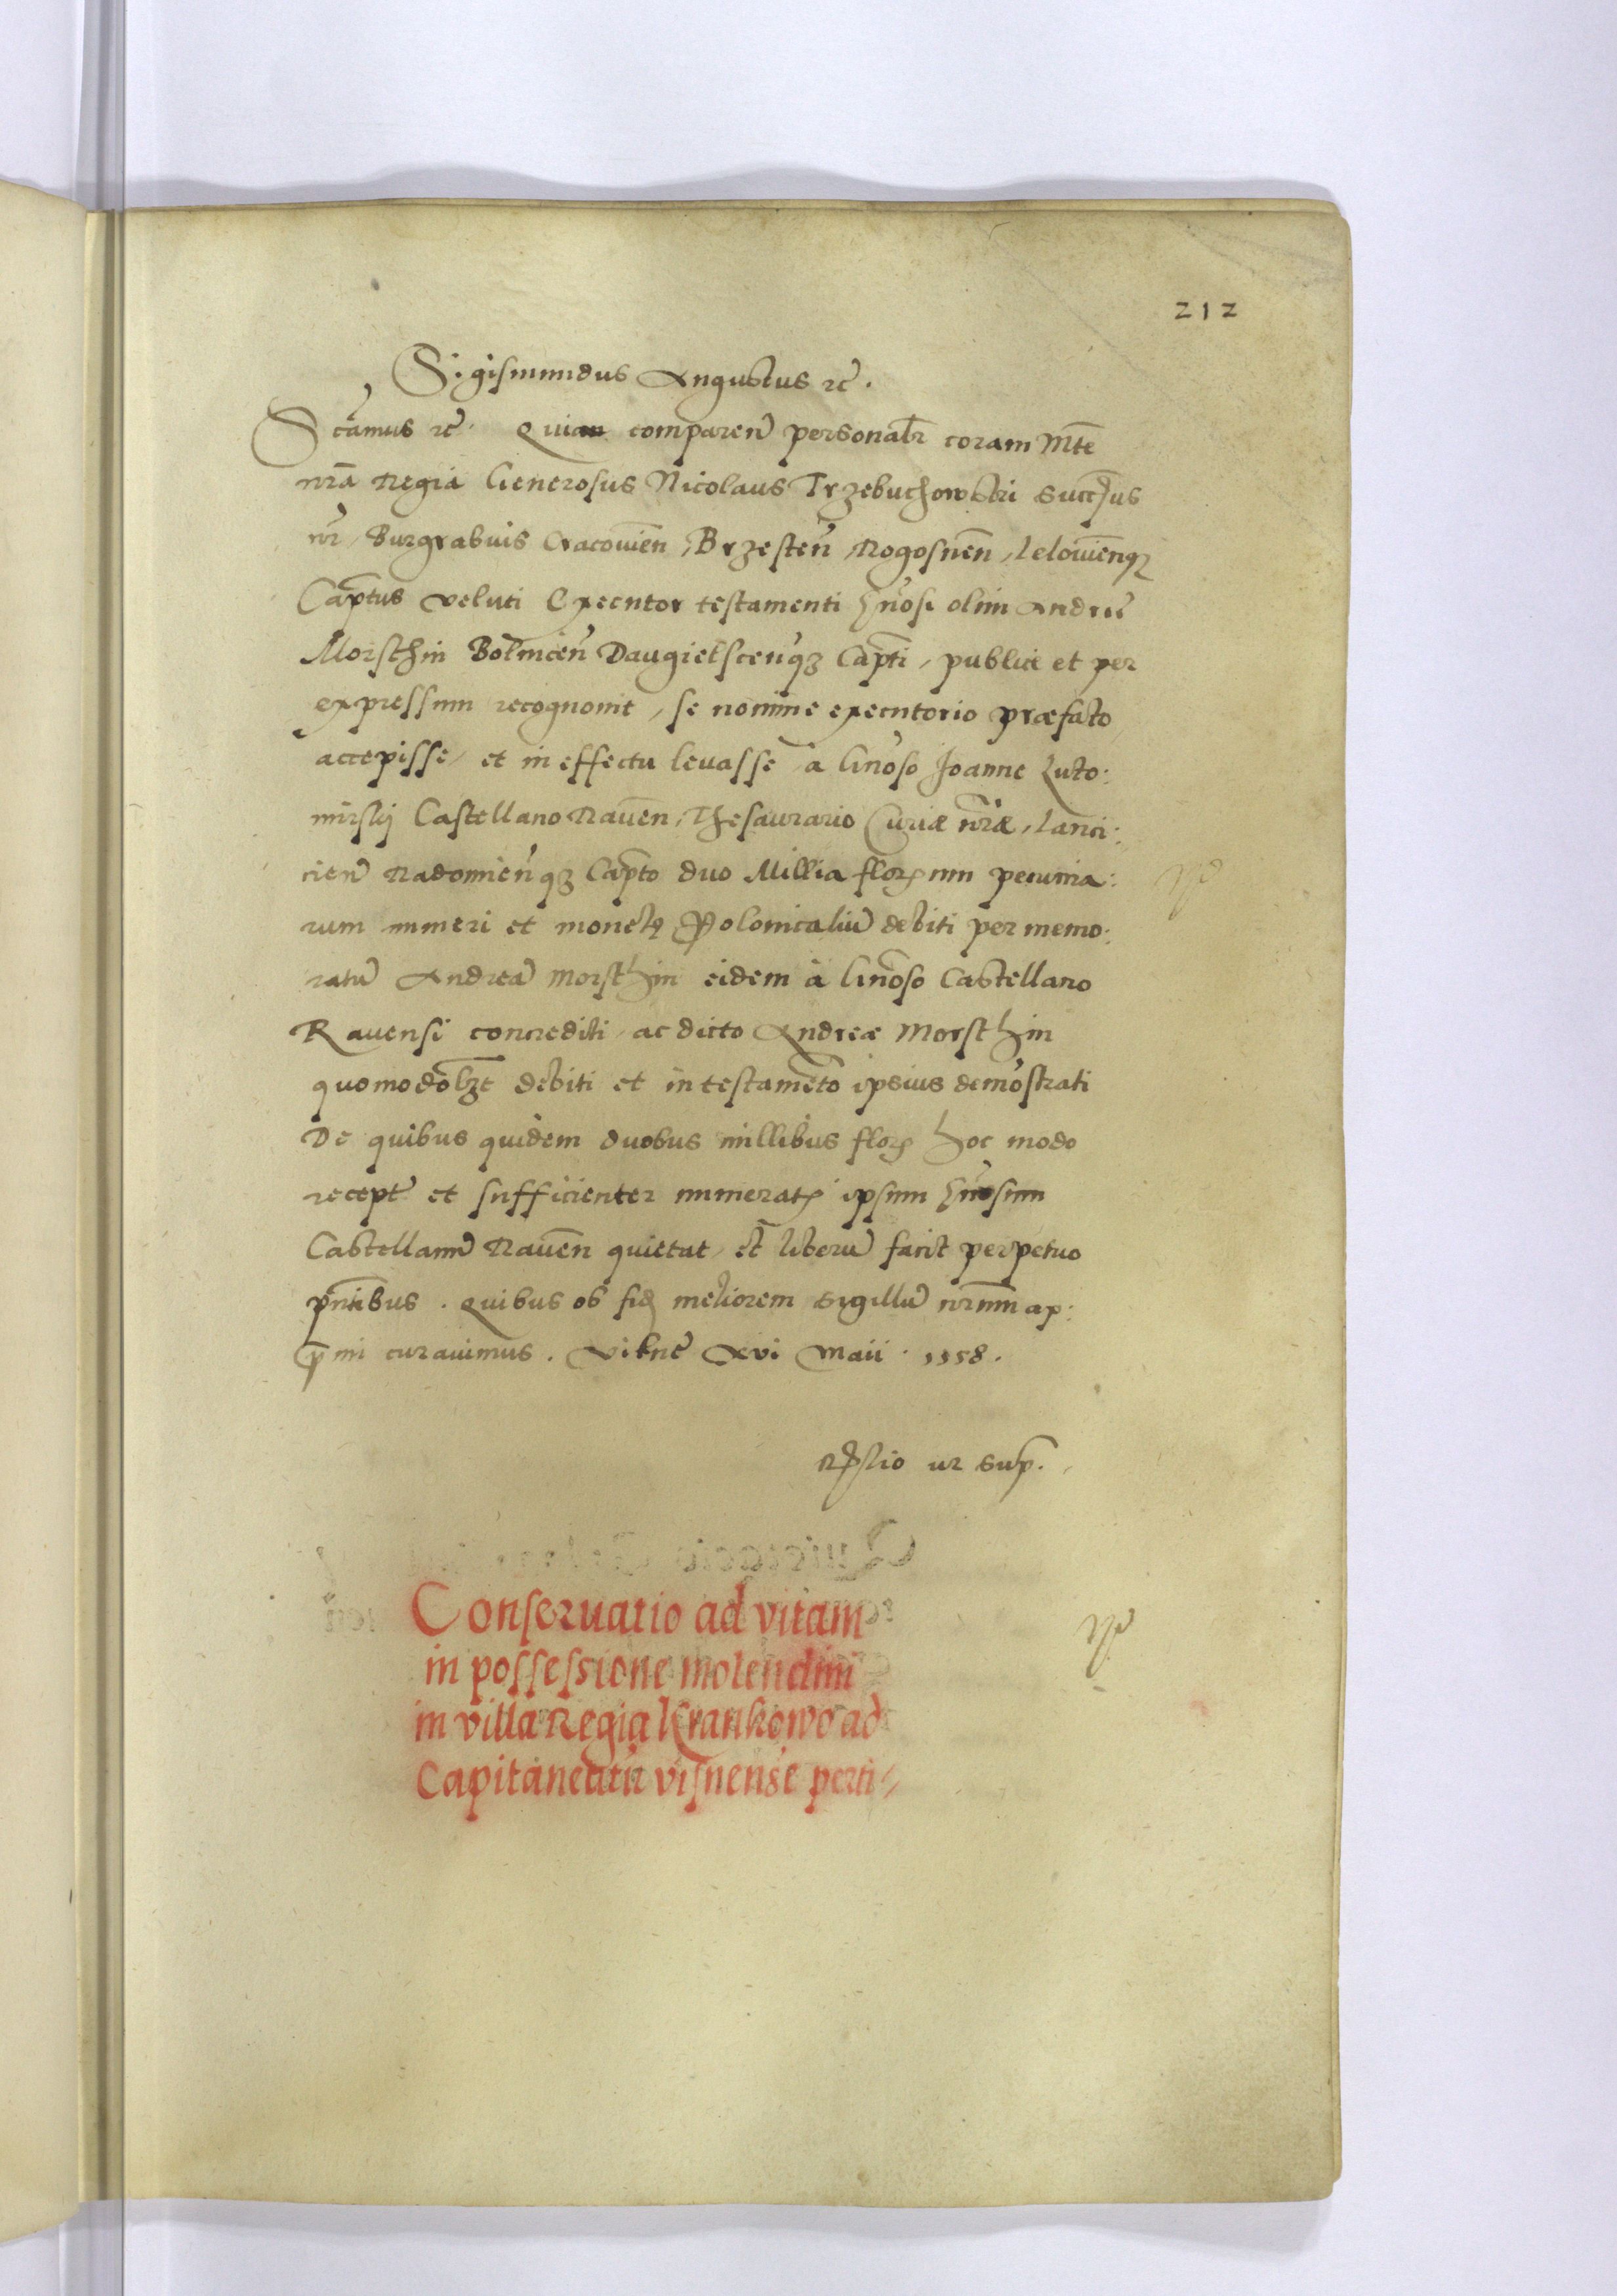 212
Sigismundus Augustus ꝛc̄.
Scāmus ꝛc̄. Quia comparen̄ personalr̄ coram Mt̄e
nr̄a Regia Generosus Nicolaus Trzebuchowski Succ̄us
nr̄, Burgrabius Cracovien̄, Brzesten̄, Rogosnen̄, Lelovien̄qꝫ
Capt̄us veluti Executor testamenti Gn̄osi olim Andreę
Morsthin Bolnicen̄ Daugielscen̄qꝫ Capt̄i, publice et per
expressum recognovit, se nomine executorio præfato
accepisse, et in effectu levasse à Gn̄oso Joanne Luto:
mirskj Castellano Raven̄, Thesaurario Curiæ nr̄æ, Lanci:
cien̄ Radomien̄qꝫ Capt̄o duo Millia florꝝ in pecunia:
rum numeri et monetę Polonicaliū debiti per memo:
ratū Andreā Morsthin eidem à Gn̄oso Castellano
Ravensi concrediti, ac dicto Andreæ Morsthin
quomodolꝫt debiti et in testamēto ipsius demōstrati
De quibus quidem duobus millibus florꝝ hoc modo
recept̄ et sufficienter numeratꝝ ipsum Gn̄osum
Castellanū Raven̄ quietat, et liberū facit perpetuo
pn̄tibus. Quibus ob fidꝫ meliorem Sigillū nr̄um ap:
p̄mi curavimus. Vilnę xvi Maii. 1558.
Rel̄io ut sup̄.
Conservatio ad vitam
in possessione molendini
in villa Regia Krankowo ad
Capitaneatū visnense perti-